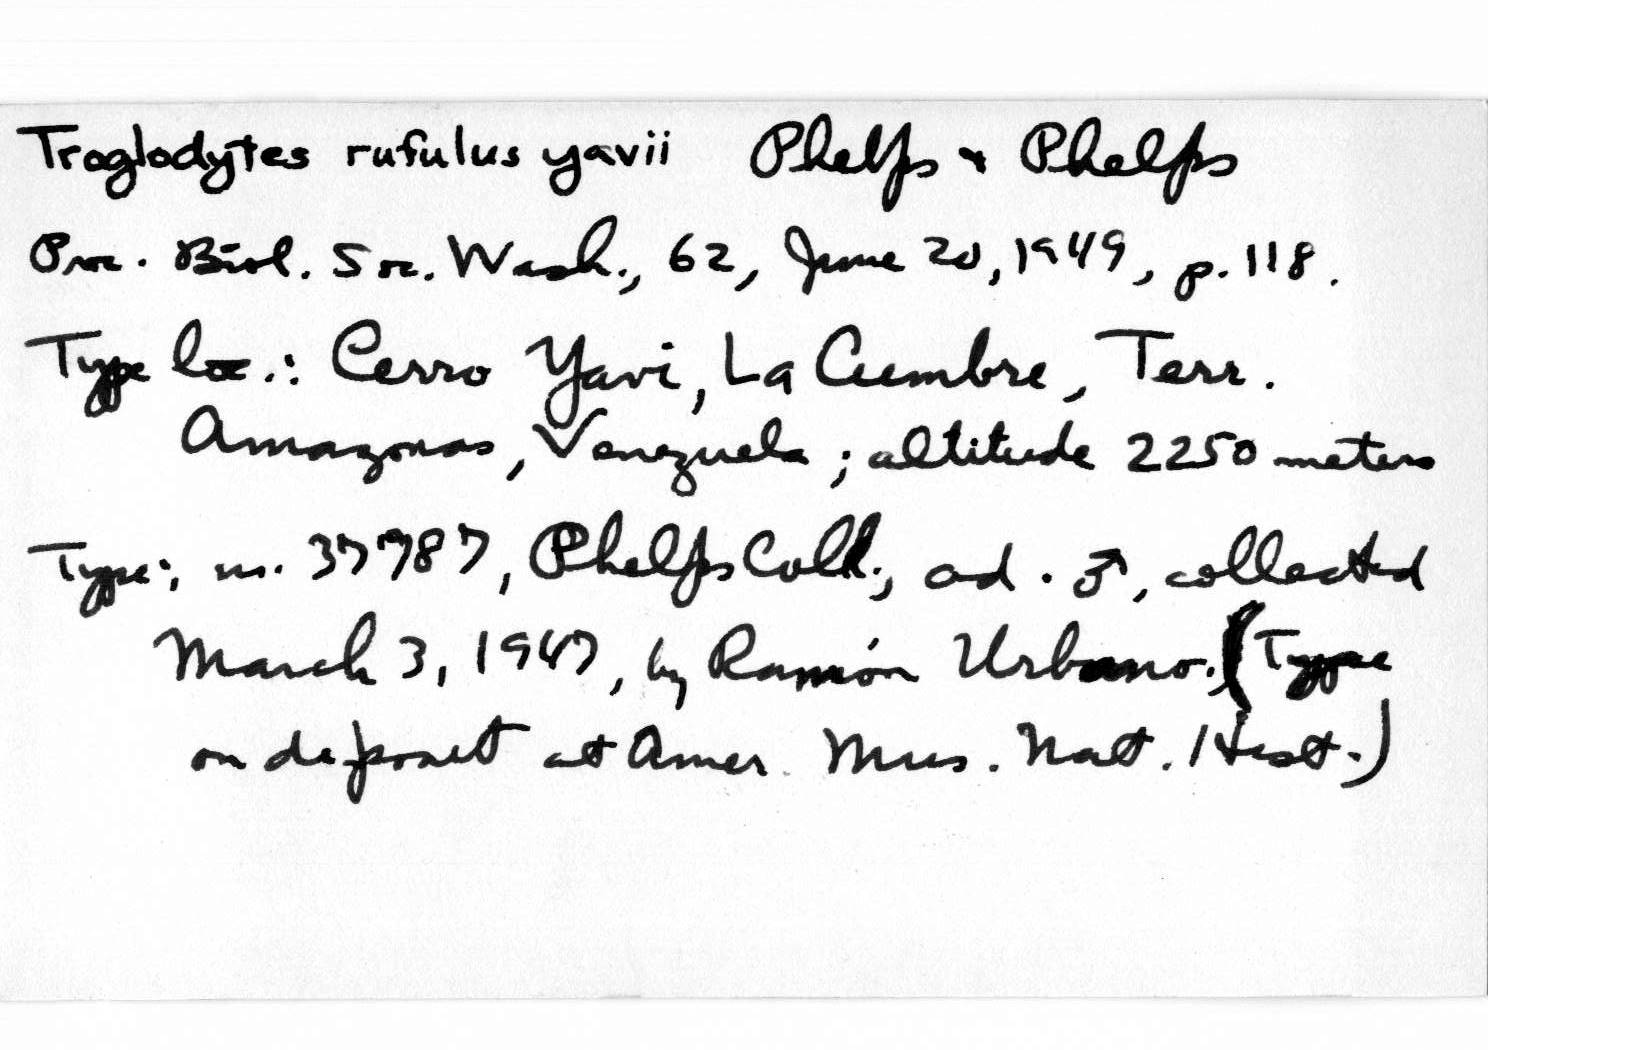 Troglodytes rufulus yavii Phelps & Phelps
Proc. Biol. Soc. Wash., 62, June 20, 1949, p. 118.
Type loc.: Cerro Yavi, La Cumbre, Terr.
Amazonas, Venezuela; altitude 2250 meters
Type:, no. 37787, Phelps Coll., ad. ♂, collected
March 3, 1947, by Ramón Urbano. (Type
on deposit at Amer. Mus. Nat. Hist.)